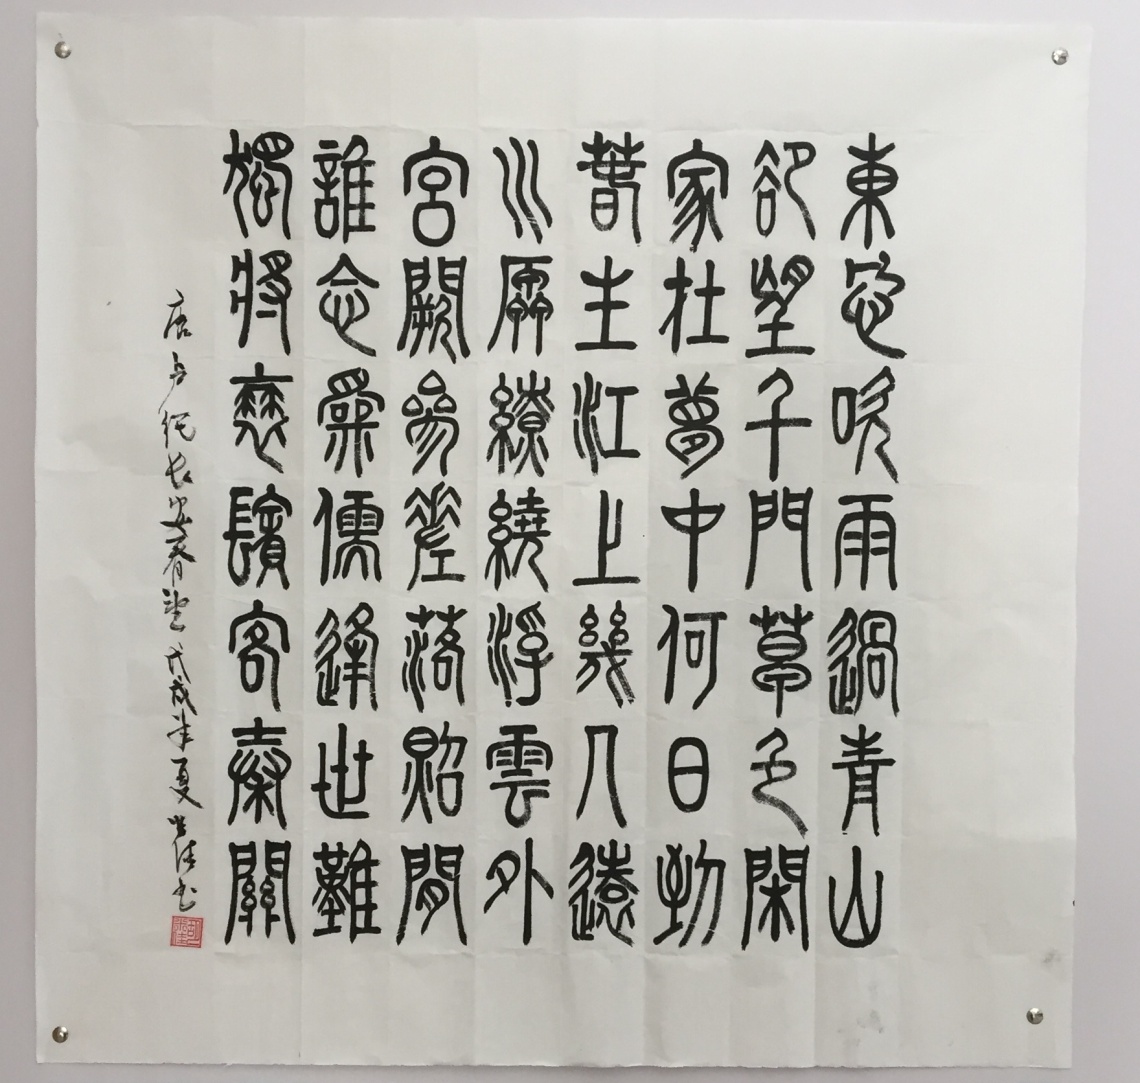 東風吹雨過青山
卻望千門草色閑
家在夢中何日到
春生江上幾人還
川原繚繞浮雲外
宮闕參差落照間
誰念為儒逢世難
獨將衰鬢客秦關
唐卢纶长安春望戊戌年夏书